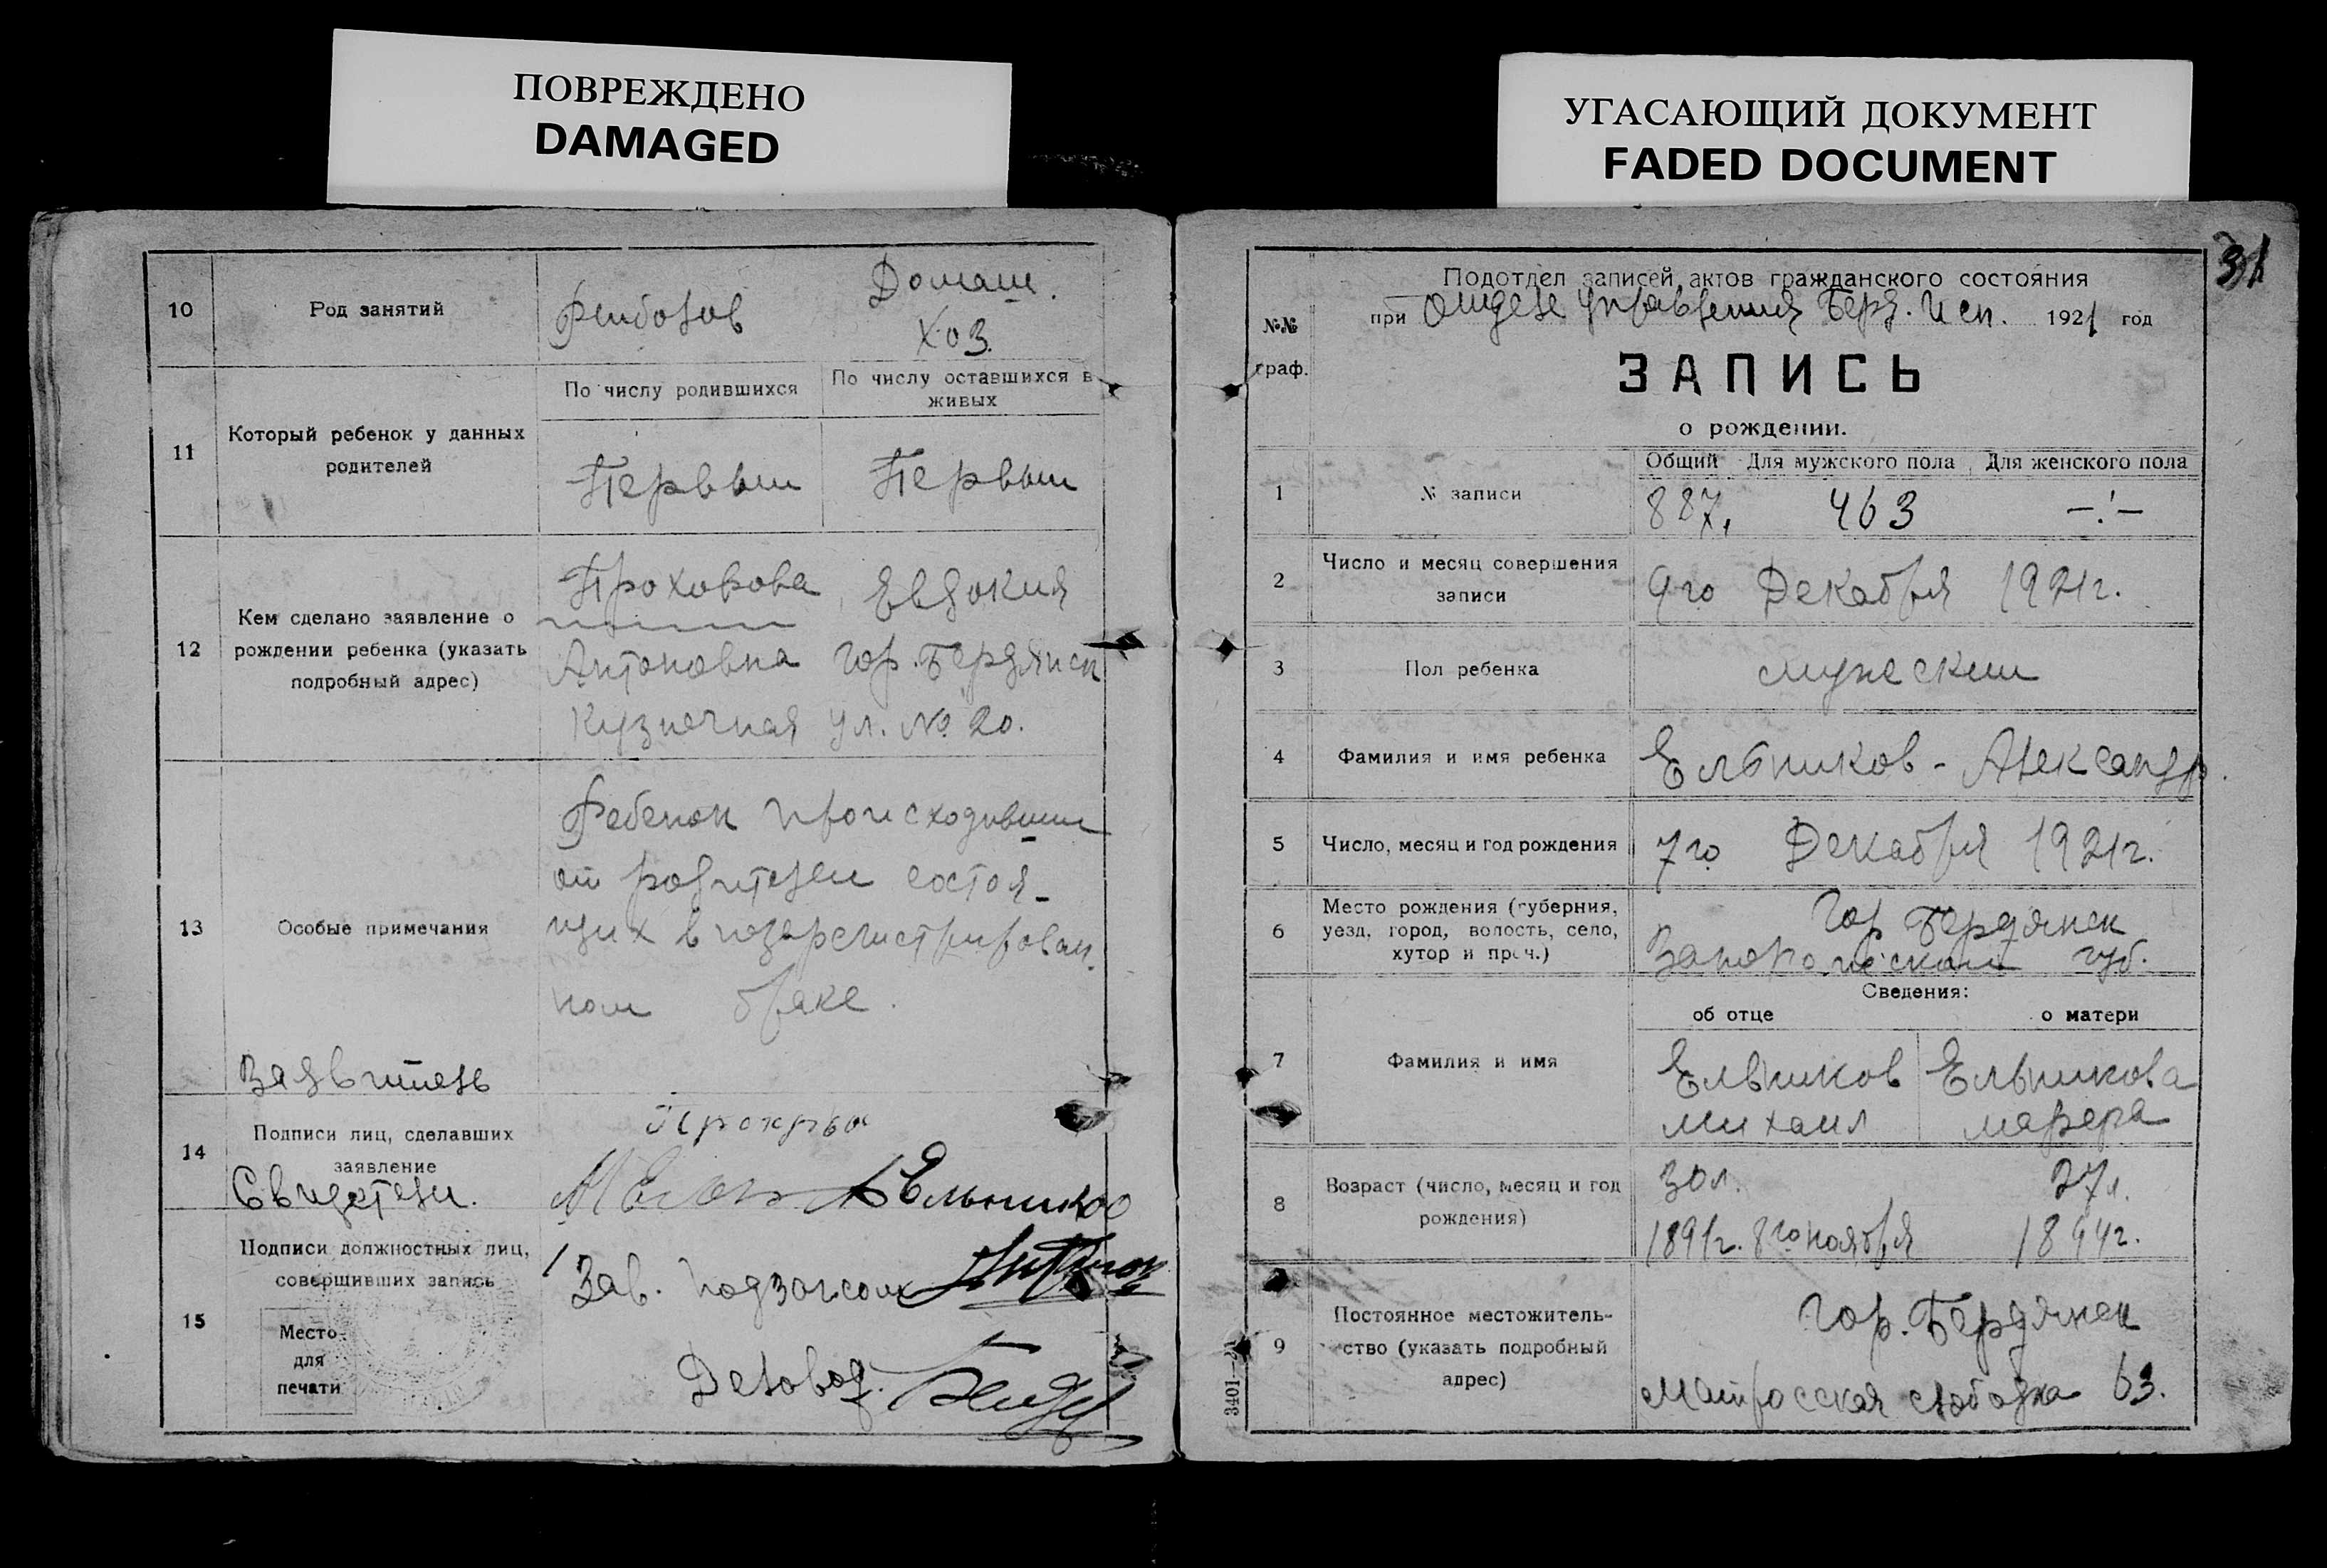 ПОВРЕЖДЕНО
DAMAGED
УГАСАЮЩИЙ ДОКУМЕНТ
FADED DOCUMENT
10
Род занятий
Рыболов
Домаш.
Хоз.
11
Который ребенок у данных
родителей
По числу родившихся
По числу оставшихся в
живых
Первый
Первый
12
Кем сделано заявление о
рождении ребенка (указать
подробный адрес)
Прохорова Евдокия
Антоновна гор. Бердянск
Кузнечная ул. № 20.
13
Особые примечания
Ребенок происходивший
от родителей состоя-
щих в незарегистрирован
ном браке.
Заявитель
14
Подписи лиц, сделавших
заявление
Свидетели.
Ельников
15
Подписи должностных лиц,
совершивших запись
Место
для
печати
Зав. подзагсом
Деловод.
31
№№
граф.
Подотдел записей актов гражданского состояния
при Отделе Управления Берд. Исп. 1921 год
ЗАПИСЬ
о рождении.
1
№ записи
Общий Для мужского пола Для женского пола
887. 463 —.—
2
Число и месяц совершения
записи
9го Декабря 1921г.
3
Пол ребенка
мужеский
4
Фамилия и имя ребенка
Ельников - Александр.
5
Число, месяц и год рождения
7го Декабря 1921г.
6
Место рождения (губерния,
уезд, город, волость, село,
хутор и проч.)
Гор Бердянск
губ.
Сведения:
об отце
о матери
7
Фамилия и имя
Ельников
Михаил
Ельникова
8
Возраст (число, месяц и год
рождения)
30л.
1891г. 8го ноября
27л.
1894г.
9
Постоянное местожитель-
ство (указать подробный
адрес)
гор. Бердянск
Матросская слободка 63.